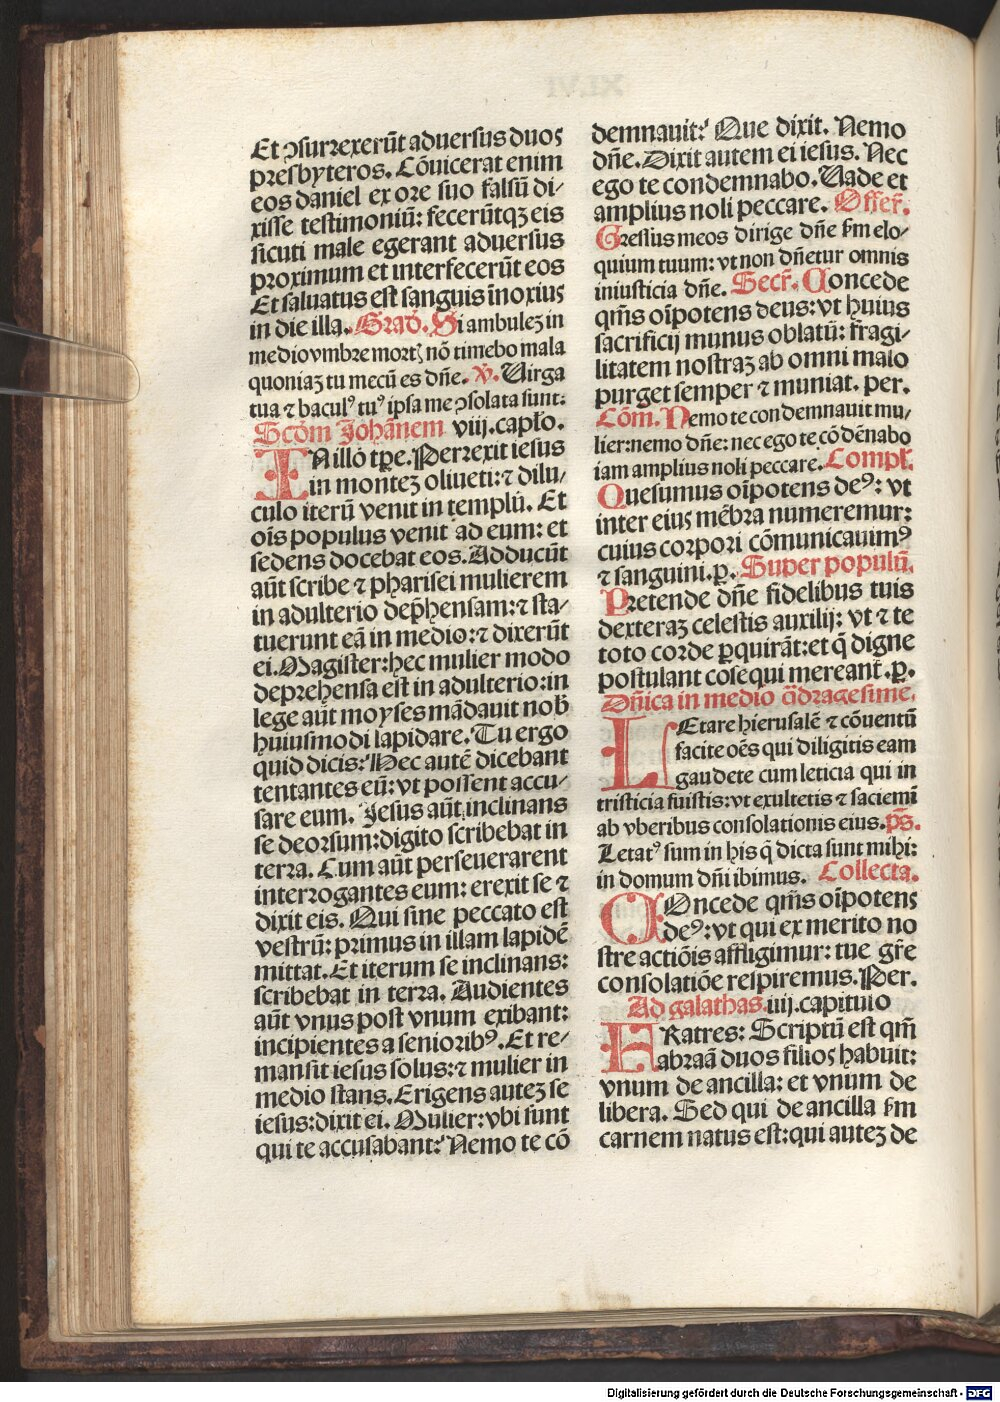 Et ↄsurrexerūt aduersus duos
presbyteros. Cōuicerat enim
eos daniel ex ore suo falsū di⸗
xisse testimoniū: fecerūtqꝫ eis
sicuti male egerant aduersus
proximum et interfecerūt eos
Et saluatus est sanguis īnoxius
in die illa. Grad̄. Si ambuleꝫ in
medio vmbre mortꝭ nō timebo mala
quoniaꝫ tu mecū es dn̄e. ℣. Uirga
tua ⁊ baculꝰ tuꝰ ipsa me ↄsolata sunt:
Scd̄m Johānem viij. capło.
IN illo tp̄e. Perrexit iesus
in monteꝫ oliueti: ⁊ dilu⸗
culo iterū venit in templū. Et
oīs populus venit ad eum: et
sedens docebat eos. Adducūt
aūt scribe ⁊ pharisei mulierem
in adulterio dep̄hensam: ⁊ sta⸗
tuerunt eā in medio: ⁊ dixerūt
ei. Magister: hec mulier modo
deprehensa est in adulterio: in
lege aūt moyses mādauit nob̄
huiusmodi lapidare. Tu ergo
quid dicis: Hec autē dicebant
tentantes eū: vt possent accu⸗
sare eum. Jesus aūt inclinans
se deorsum: digito scribebat in
terra. Cum aūt perseuerarent
interrogantes eum: erexit se ⁊
dixit eis. Qui sine peccato est
vestrū: primus in illam lapidē
mittat. Et iterum se inclinans:
scribebat in terra. Audientes
aūt vnus post vnum exibant:
incipientes a senioribꝰ. Et re⸗
mansit iesus solus: ⁊ mulier in
medio stans. Erigens auteꝫ se
iesus: dixit ei. Mulier: vbi sunt
qui te accusabant: Nemo te cō
demnauit: Que dixit. Nemo
dn̄e. Dixit autem ei iesus. Nec
ego te condemnabo. Uade et
amplius noli peccare. Offer̄.
Gressus meos dirige dn̄e s̄m elo⸗
quium tuum: vt non dn̄etur omnis
iniusticia dn̄e. Secr̄. Concede
qm̄s oīpotens deus: vt huius
sacrificij munus oblatū: fragi⸗
litatem nostraꝫ ab omni malo
purget semper ⁊ muniat. per.
Cōm. Nemo te condemnauit mu⸗
lier: nemo dn̄e: nec ego te cōdēnabo
iam amplius noli peccare. Compł.
Quesumus oīpotens deꝰ: vt
inter eius mēbra numeremur:
cuius corpori cōmunicauimꝰ
⁊ sanguini. ꝑ. Super populū.
Pretende dn̄e fidelibus tuis
dexteraꝫ celestis auxilij: vt ⁊ te
toto corde ꝑquirāt: et q̄ digne
postulant cōsequi mereant̄. ꝑ.
Dn̄ica in medio q̄dragesime.
LEtare hierusalē ⁊ cōuentū
facite oēs qui diligitis eam
gaudete cum leticia qui in
tristicia fuistis: vt exultetis ⁊ saciemī
ab vberibus consolationis eius. ps̄.
Letatꝰ sum in his q̄ dicta sunt mihi:
in domum dn̄i ibimus. Collecta.
COncede qm̄s oīpotens
deꝰ: vt qui ex merito no
stre actiōis affligimur: tue gr̄e
consolatiōe respiremus. Per.
Ad galathas. iiij. capitulo
FRatres: Scriptū est qm̄
abraā duos filios habuit:
vnum de ancilla: et vnum de
libera. Sed qui de ancilla s̄m
carnem natus est: qui auteꝫ de
Digitalisierung gefördert durch die Deutsche Forschungsgemeinschaft - DFG